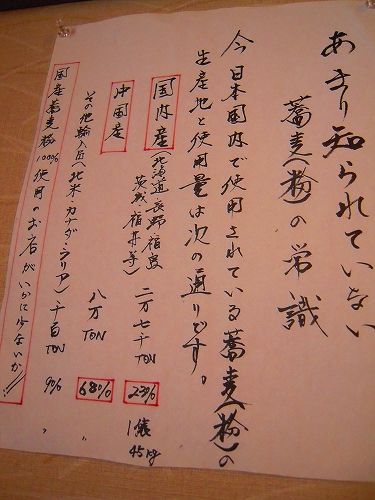 あまり知られていない
蕎麦(粉)の常識
今日本国内で使用されている蕎麦(粉)の
生産地と使用量は次の通りです。
国内産(北海道、長野、福島 茨城、福井等) 二万七千TON 23% 1俵45kg
中国産 八万TON 68% 〃
その他輸入品(北米・カナダ・ラリア) 千百TON 9% 〃
国産蕎麦粉100%使用のお店がいかに少ないか!!